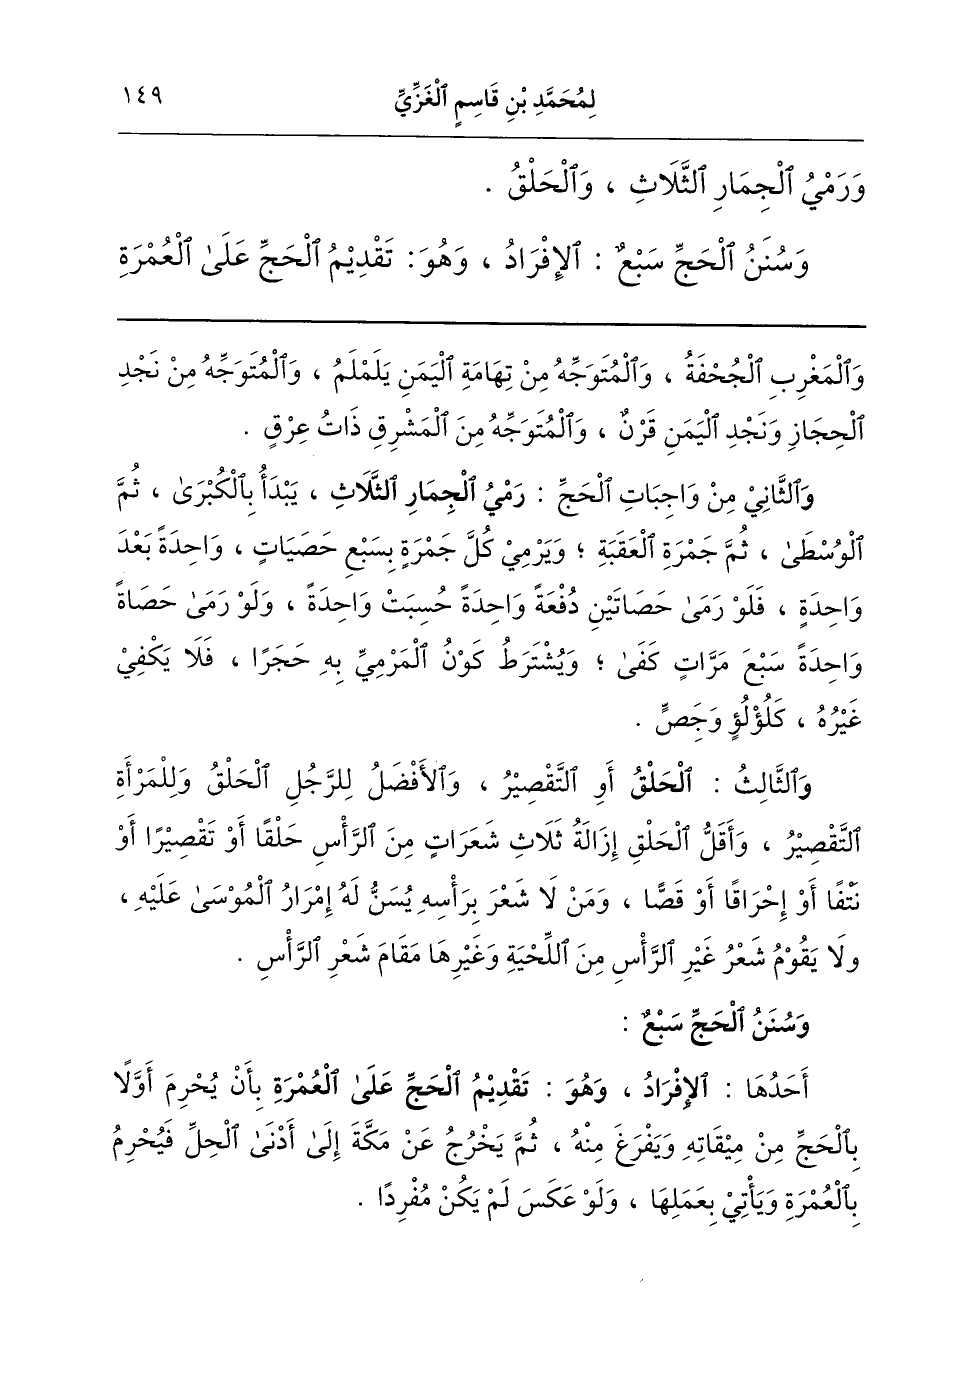 لِمُحَمَّدِ بْنِ قَاسِمٍ ٱلْغَزِّيِّ ١٤٩
وَرَمْيُ ٱلْجِمَارِ ٱلثَّلَاثِ ، وَٱلْحَلْقُ .
وَسُنَنُ ٱلْحَجِّ سَبْعٌ : ٱلإِفْرَادُ ، وَهُوَ: تَقْدِيْمُ ٱلْحَجِّ عَلَىٰ ٱلْعُمْرَةِ
وَٱلْمَغْرِبِ ٱلْجُحْفَةُ ، وَٱلْمُتَوَجِّهُ مِنْ تِهَامَةِ ٱلْيَمَنِ يَلَمْلَمُ ، وَٱلْمُتَوَجِّهُ مِنْ نَجْدِ
ٱلْحِجَازِ وَنَجْدِ ٱلْيَمَنِ قَرْنٌ ، وَٱلْمُتَوَجِّهُ مِنَ ٱلْمَشْرِقِ ذَاتُ عِرْقٍ .
وَٱلثَّانِيْ مِنْ وَاجِبَاتِ ٱلْحَجِّ : رَمْيُ ٱلْجِمَارِ ٱلثَّلَاثِ ، يَبْدَأُ بِٱلْكُبْرَىٰ ، ثُمَّ
ٱلْوُسْطَىٰ ، ثُمَّ جَمْرَةِ ٱلْعَقَبَةِ ؛ وَيَرْمِيْ كُلَّ جَمْرَةٍ بِسَبْعِ حَصَيَاتٍ ، وَاحِدَةً بَعْدَ
وَاحِدَةٍ ، فَلَوْ رَمَىٰ حَصَاتَيْنِ دُفْعَةً وَاحِدَةً حُسِبَتْ وَاحِدَةً ، وَلَوْ رَمَىٰ حَصَاةً
وَاحِدَةً سَبْعَ مَرَّاتٍ كَفَىٰ ؛ وَيُشْتَرَطُ كَوْنُ ٱلْمَرْمِيِّ بِهِ حَجَرًا ، فَلَا يَكْفِيْ
غَيْرُهُ ، كَلُؤْلُؤٍ وَجَصٍّ .
وَٱلثَّالِثُ : ٱلْحَلْقُ أَوِ ٱلتَّقْصِيْرُ ، وَٱلأَفْضَلُ لِلرَّجُلِ ٱلْحَلْقُ وَلِلْمَرْأَةِ
ٱلتَّقْصِيْرُ ، وَأَقَلُّ ٱلْحَلْقِ إِزَالَةُ ثَلَاثِ شَعَرَاتٍ مِنَ ٱلرَّأْسِ حَلْقًا أَوْ تَقْصِيْرًا أَوْ
نَتْفًا أَوْ إِحْرَاقًا أَوْ قَصًّا ، وَمَنْ لَا شَعْرَ بِرَأْسِهِ يُسَنُّ لَهُ إِمْرَارُ ٱلْمُوْسَىٰ عَلَيْهِ ،
ولَا يَقُوْمُ شَعْرُ غَيْرِ ٱلرَّأْسِ مِنَ ٱللِّحْيَةِ وَغَيْرِهَا مَقَامَ شَعْرِ ٱلرَّأْسِ .
وَسُنَنُ ٱلْحَجِّ سَبْعٌ :
أَحَدُهَا : ٱلإِفْرَادُ ، وَهُوَ : تَقْدِيْمُ ٱلْحَجِّ عَلَىٰ ٱلْعُمْرَةِ بِأَنْ يُحْرِمَ أَوَّلًا
بِٱلْحَجِّ مِنْ مِيْقَاتِهِ وَيَفْرَغَ مِنْهُ ، ثُمَّ يَخْرُجُ عَنْ مَكَّةَ إِلَىٰ أَدْنَىٰ ٱلْحِلِّ فَيُحْرِمُ
بِٱلْعُمْرَةِ وَيَأْتِيْ بِعَمَلِهَا ، وَلَوْ عَكَسَ لَمْ يَكُنْ مُفْرِدًا .